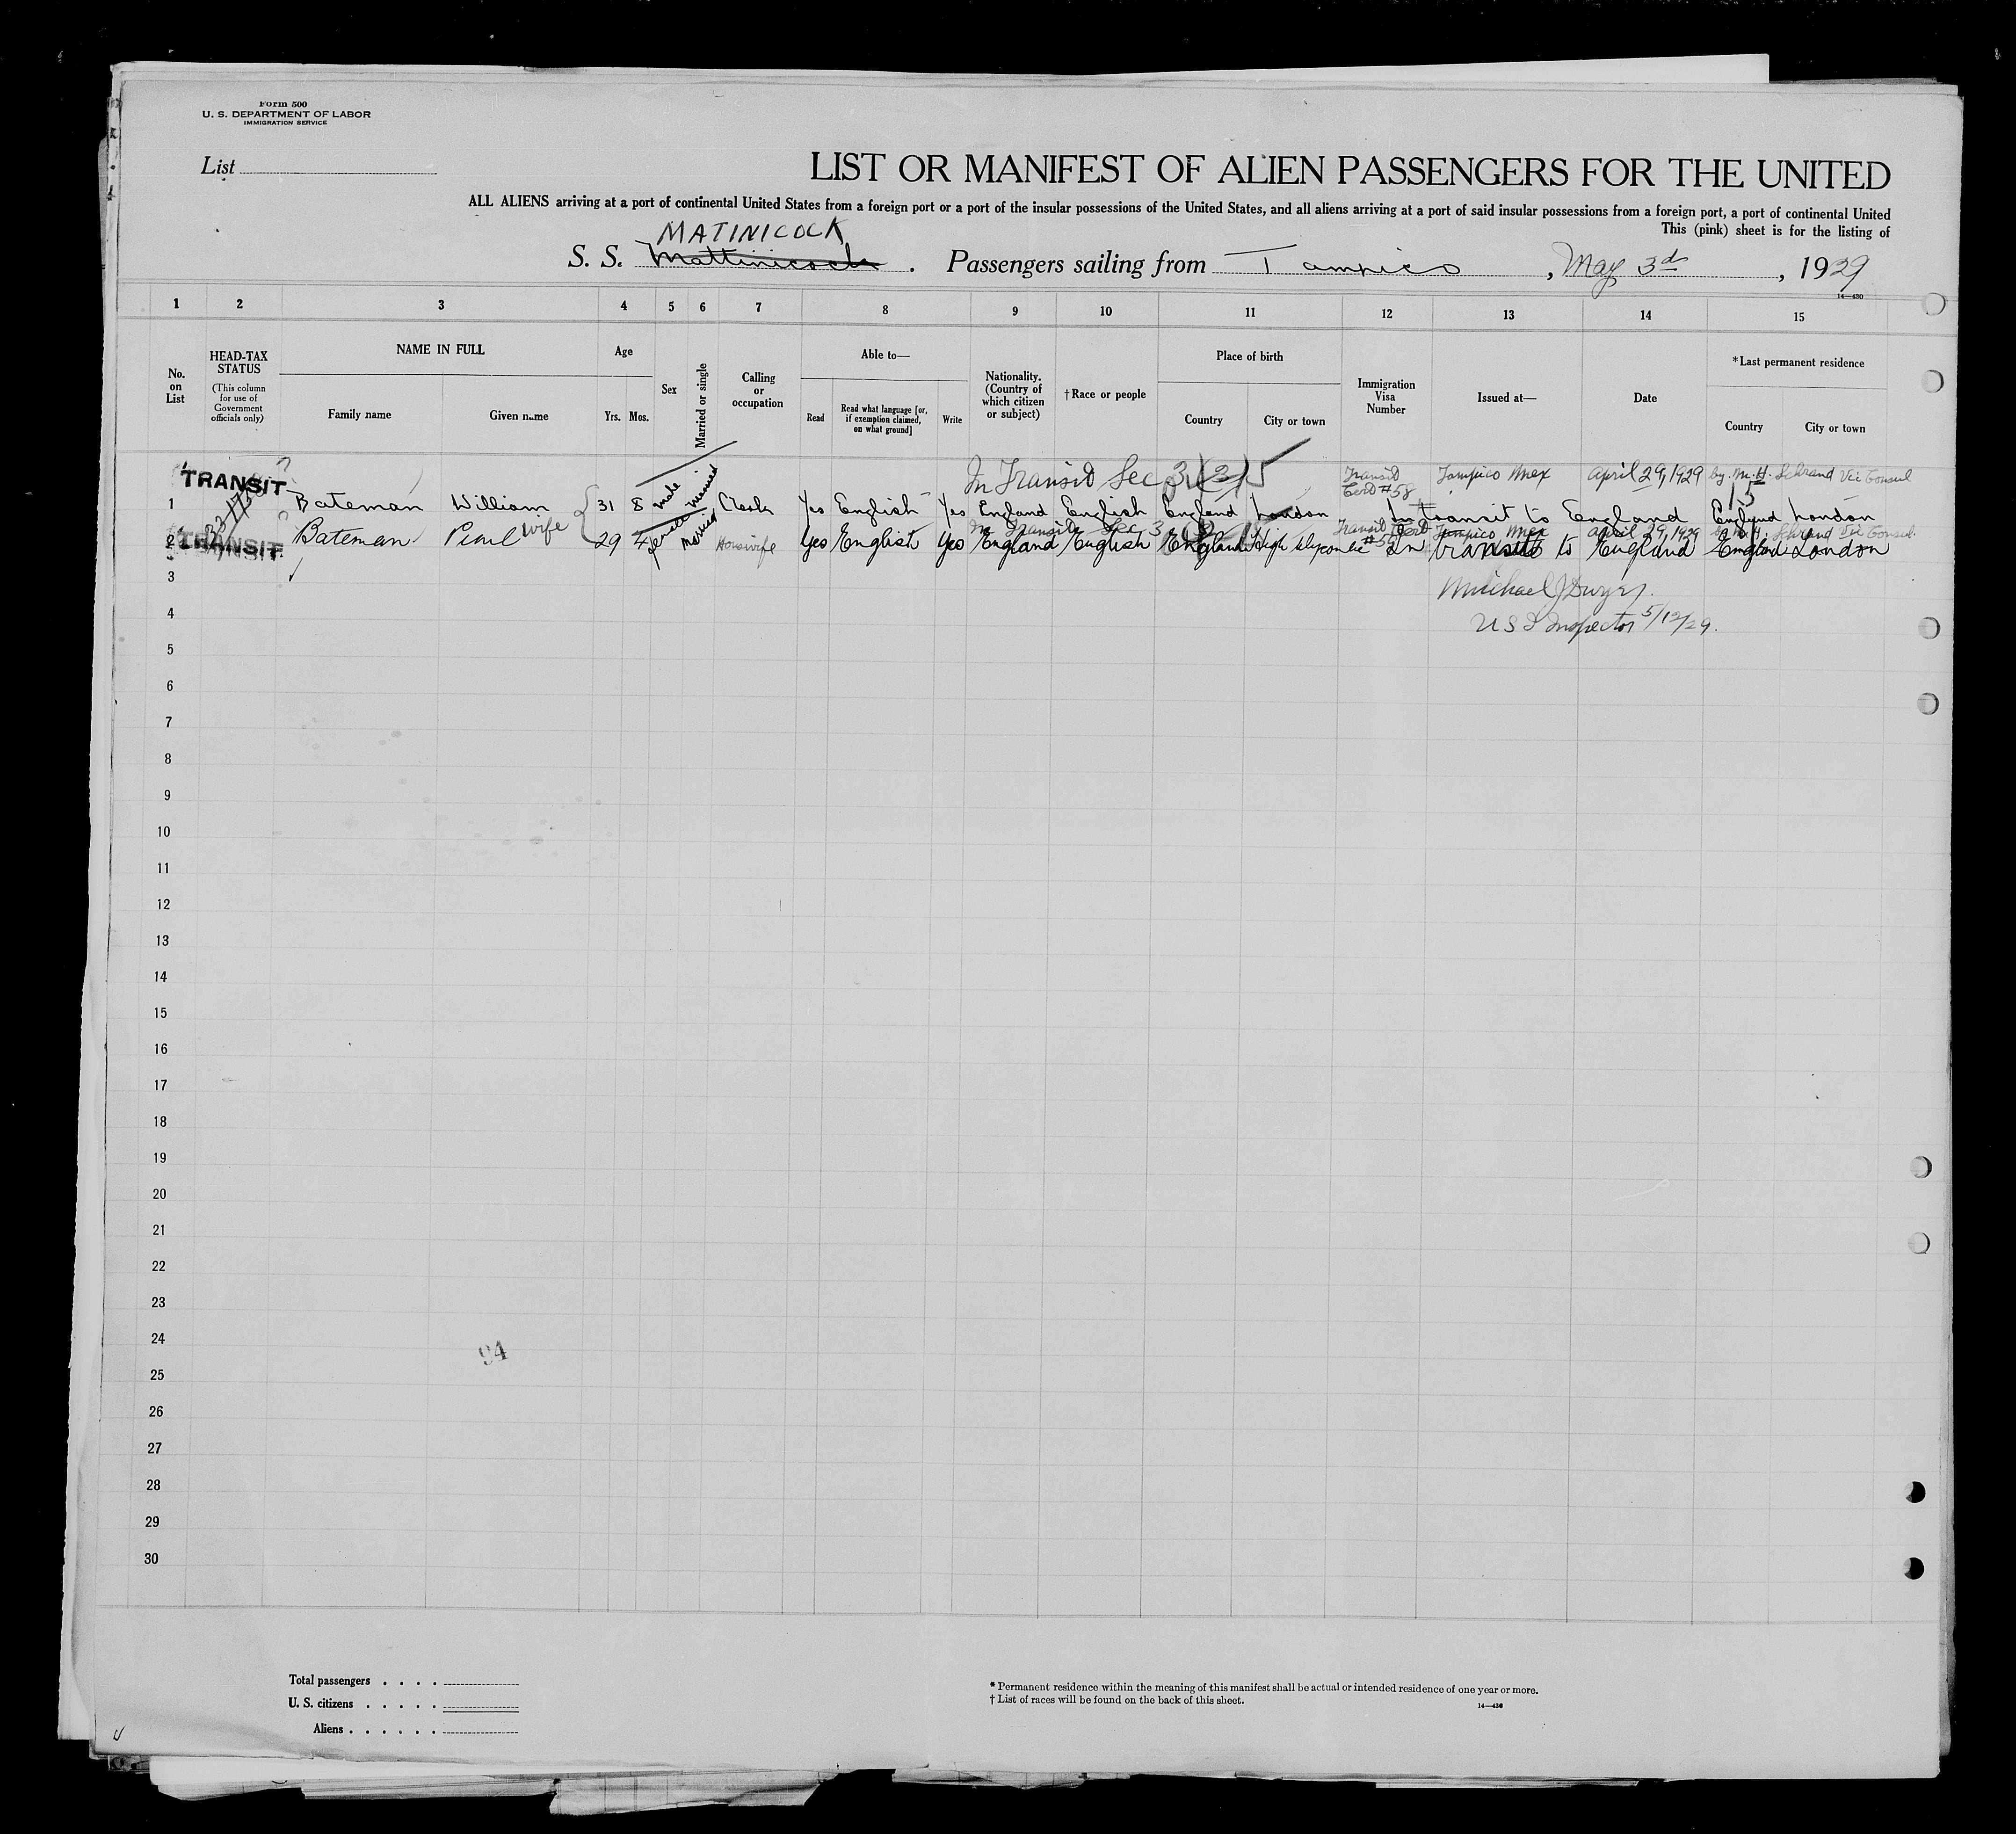 Form 500
U. S. DEPARTMENT OF LABOR
IMMIGRATION SERVICE
List
LIST OR MANIFEST OF ALIEN PASSENGERS FOR THE UNITED
ALL ALIENS arriving at a port of continental United States from a foreign port or a port of the insular possessions of the United States, and all aliens arriving at a port of said insular possessions from a foreign port, a port of continental United
This (pink) sheet is for the listing of
MATINICOCK
S. S. Mattinicock . Passengers sailing from Tampico , May 3d , 1929
14—430
1 2 3 4 5 6 7 8 9 10 11 12 13 14 15
No. on List
HEAD-TAX STATUS
(This column for use of Government officials only)
NAME IN FULL
Family name Given name
Age
Yrs. Mos.
Sex
Married or single
Calling or occupation
Able to—
Read
Read what language [or, if exemption claimed, on what ground]
Write
Nationality. (Country of which citizen or subject)
†Race or people
Place of birth
Country City or town
Immigration Visa Number
Issued at—
Date
*Last permanent residence
Country City or town
TRANSIT In Transit Sec 3 (2) Transit Cert #58 Tampico Mex April 29, 1929 by M. H. Schrand Vice Consul
1 Bateman William 31 8 male married Clerk Yes English Yes England English England London In transit to England England London
In Transit Sec 3 Transit Cert #59 Tampico Mex April 29, 1929 Schrand Vice Consul.
2 TRANSIT Bateman Pearl wife 29 4 female married Housewife Yes English Yes England English England High In transit to England England London
3 Michael J Dwyer.
4 U S I Inspector 5/12/29.
5
6
7
8
9
10
11
12
13
14
15
16
17
18
19
20
21
22
23
24
94
25
26
27
28
29
30
Total passengers . . . .
U. S. citizens . . . . .
Aliens . . . . . .
* Permanent residence within the meaning of this manifest shall be actual or intended residence of one year or more.
† List of races will be found on the back of this sheet.
14—430